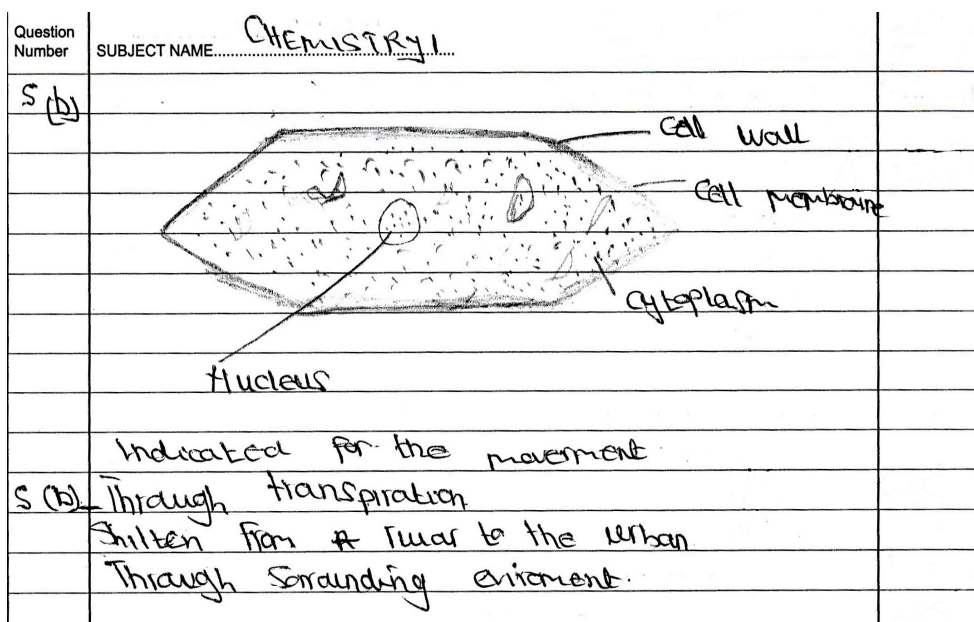 Question
Number
SUBJECT NAME.......... CHEMISTRY 1
5 (b)
Cell wall
Cell membrane
Cytoplasm
Nucleus
Indicated for the movement
5 (b) Through transpiration
from to the urban
Through Sorrounding eviroment.